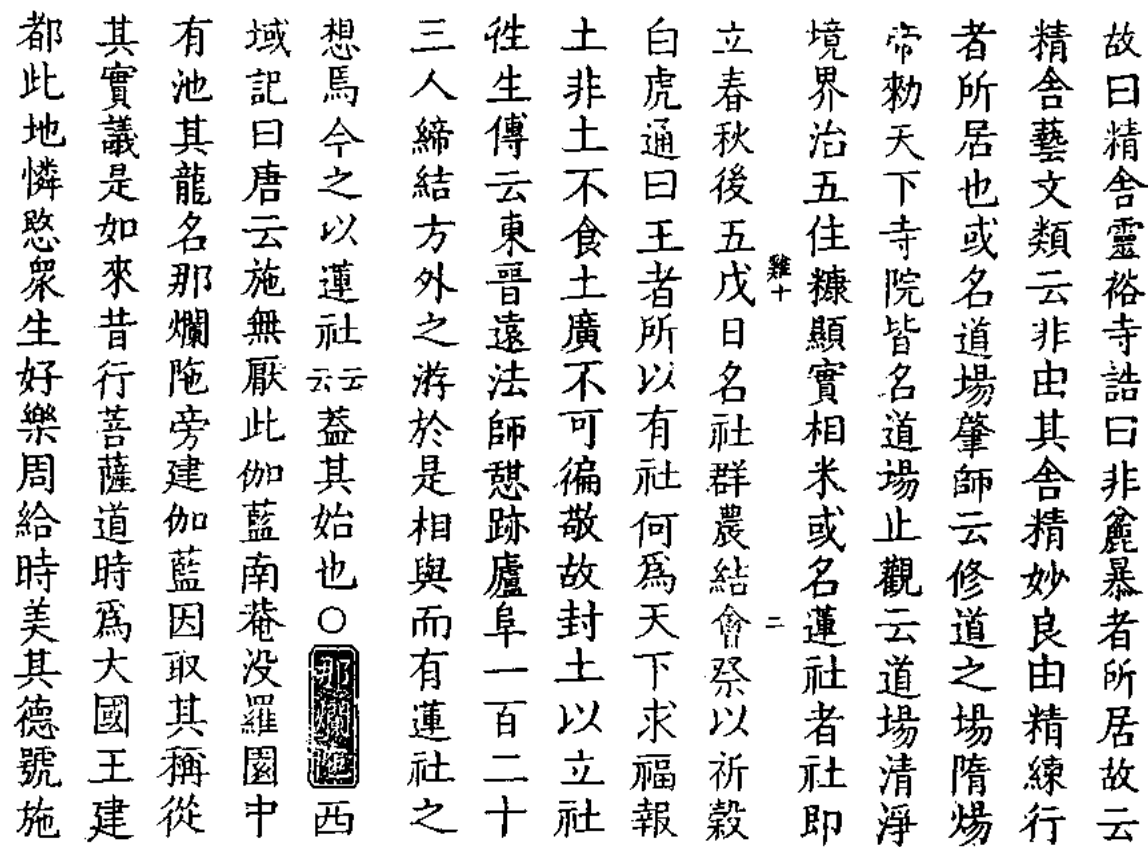 故曰精舍靈裕寺誥曰非麄暴者所居故云
精舍藝文類云非由其舍精妙良由精練行
者所居也或名道場肇師云修道之場隋煬
帝勑天下寺院皆名道場止觀云道場清淨
境界治五住糠顯實相米或名蓮社者社即
雞十
二
立春秋後五戊日名社群農結會祭以祈穀
白虎通曰王者所以有社何爲天下求福報
土非土不食土廣不可徧敬故封土以立社
徃生傳云東晉遠法師憇跡廬阜一百二十
三人締結方外之游於是相與而有蓮社之
想焉今之以蓮社云云葢其始也○那爛陁西
域記曰唐云施無厭此伽藍南菴没羅園中
有池其龍名那爛陁旁建伽藍因取其稱從
其實議是如來昔行菩薩道時爲大國王建
都此地憐愍衆生好樂周給時美其德號施